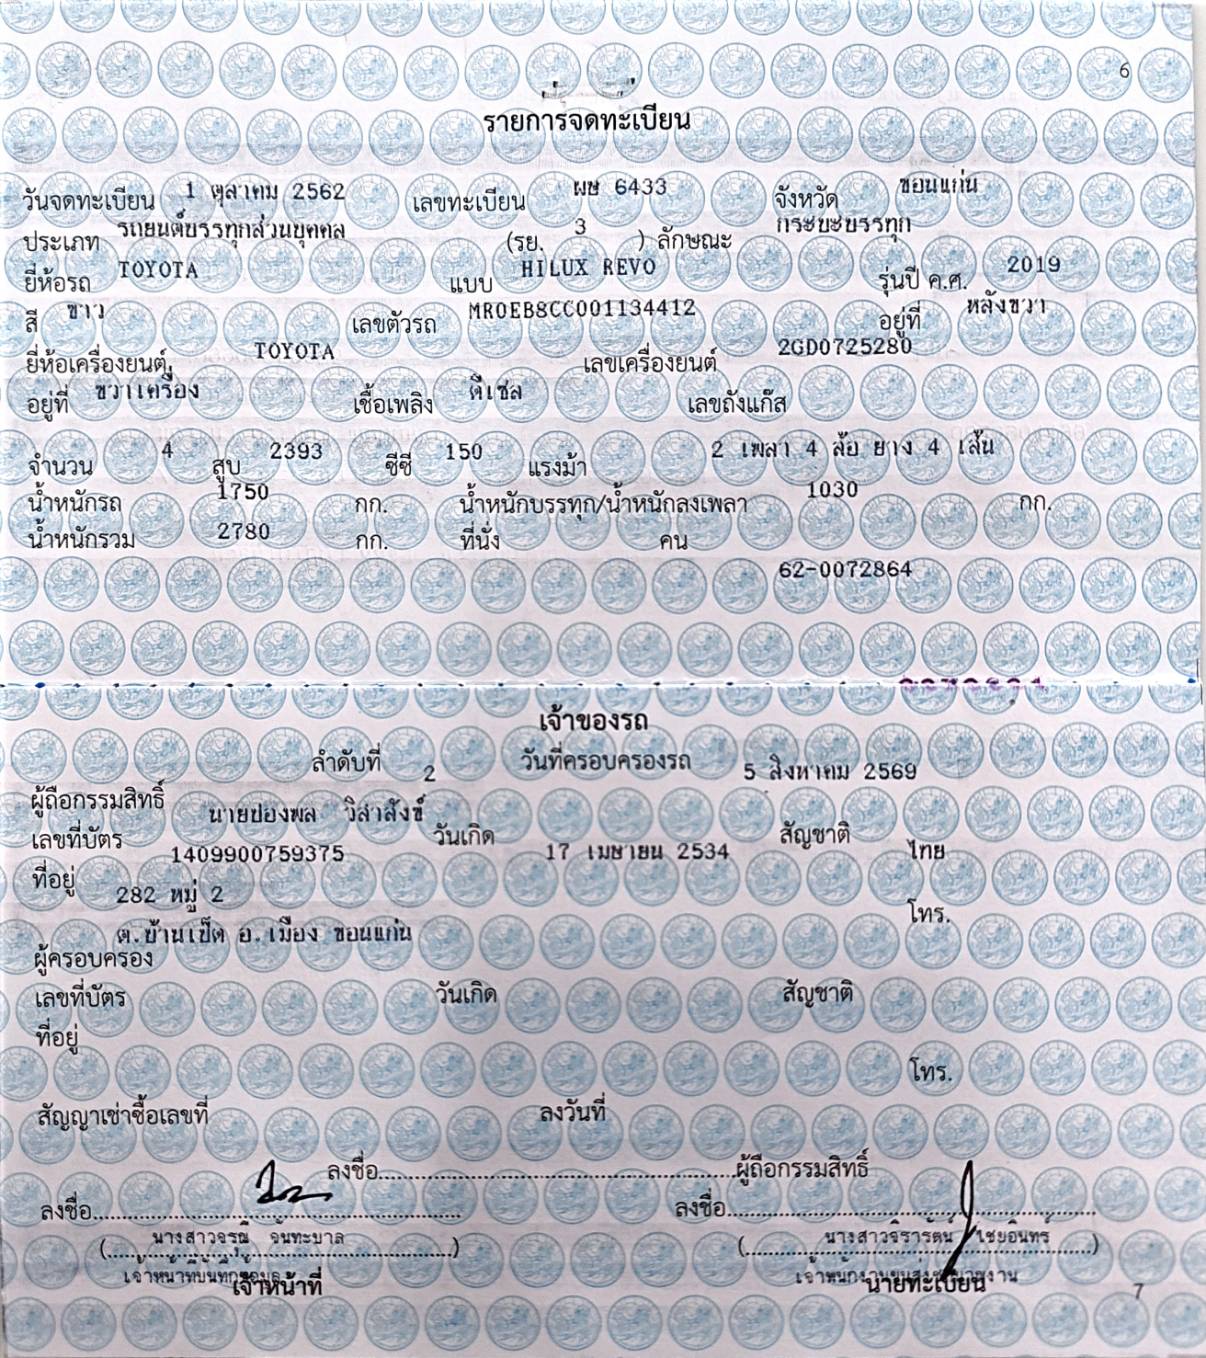 6
รายการจดทะเบียน
วันจดทะเบียน 1 ตุลาคม 2562 เลขทะเบียน ผษ 6433 จังหวัด ขอนแก่น
ประเภท รถยนต์บรรทุกส่วนบุคคล (รย. 3 ) ลักษณะ กระบะบรรทุก
ยี่ห้อรถ TOYOTA แบบ HILUX REVO รุ่นปี ค.ศ. 2019
สี ขาว เลขตัวรถ MR0EB8CC001134412 อยู่ที่ หลังขวา
ยี่ห้อเครื่องยนต์ TOYOTA เลขเครื่องยนต์ 2GD0725280
อยู่ที่ ขวาเครื่อง เชื้อเพลิง ดีเซล เลขถังแก๊ส
จำนวน 4 สูบ 2393 ซีซี 150 แรงม้า 2 เพลา 4 ล้อ ยาง 4 เส้น
น้ำหนักรถ 1750 กก. น้ำหนักบรรทุก/น้ำหนักลงเพลา 1030 กก.
น้ำหนักรวม 2780 กก. ที่นั่ง คน
62-0072864
เจ้าของรถ
ลำดับที่ 2 วันที่ครอบครองรถ 5 สิงหาคม 2569
ผู้ถือกรรมสิทธิ์ นายปองพล วิสาสังข์
เลขที่บัตร 1409900759375 วันเกิด 17 เมษายน 2534 สัญชาติ ไทย
ที่อยู่ 282 หมู่ 2
โทร.
ต.บ้านเป็ด อ.เมือง ขอนแก่น
ผู้ครอบครอง
เลขที่บัตร วันเกิด สัญชาติ
ที่อยู่
โทร.
สัญญาเช่าซื้อเลขที่ ลงวันที่
ลงชื่อ........................................ผู้ถือกรรมสิทธิ์
ลงชื่อ........................................ ลงชื่อ........................................
(นางสาวจรุณี จันทะบาล) (นางสาวจิรารัตน์ ไชยอินทร์)
เจ้าหน้าที่บันทึกข้อมูล
เจ้าหน้าที่ นายทะเบียน
7